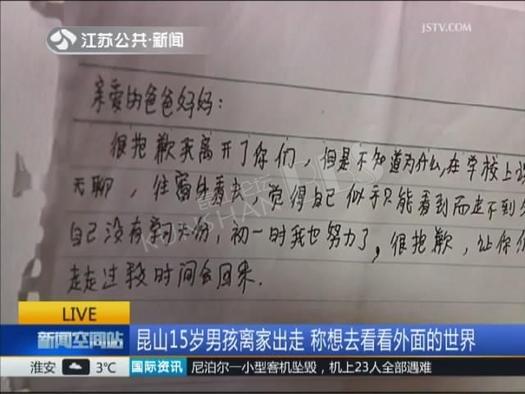 江苏公共·新闻
JSTV.COM
亲爱的爸爸妈妈:
很抱歉我离开了你们,但是不知道为什么,在学校上
无聊,往窗外看去,觉得自己似乎只能看到而走不到
自己没有学习天份,初一时我也努力了,很抱歉,让你们
走走过段时间会回来.
KUNSHAN
LIVE
新闻空间站
昆山15岁男孩离家出走 称想去看看外面的世界
淮安 3℃ 国际资讯 尼泊尔一小型客机坠毁,机上23人全部遇难